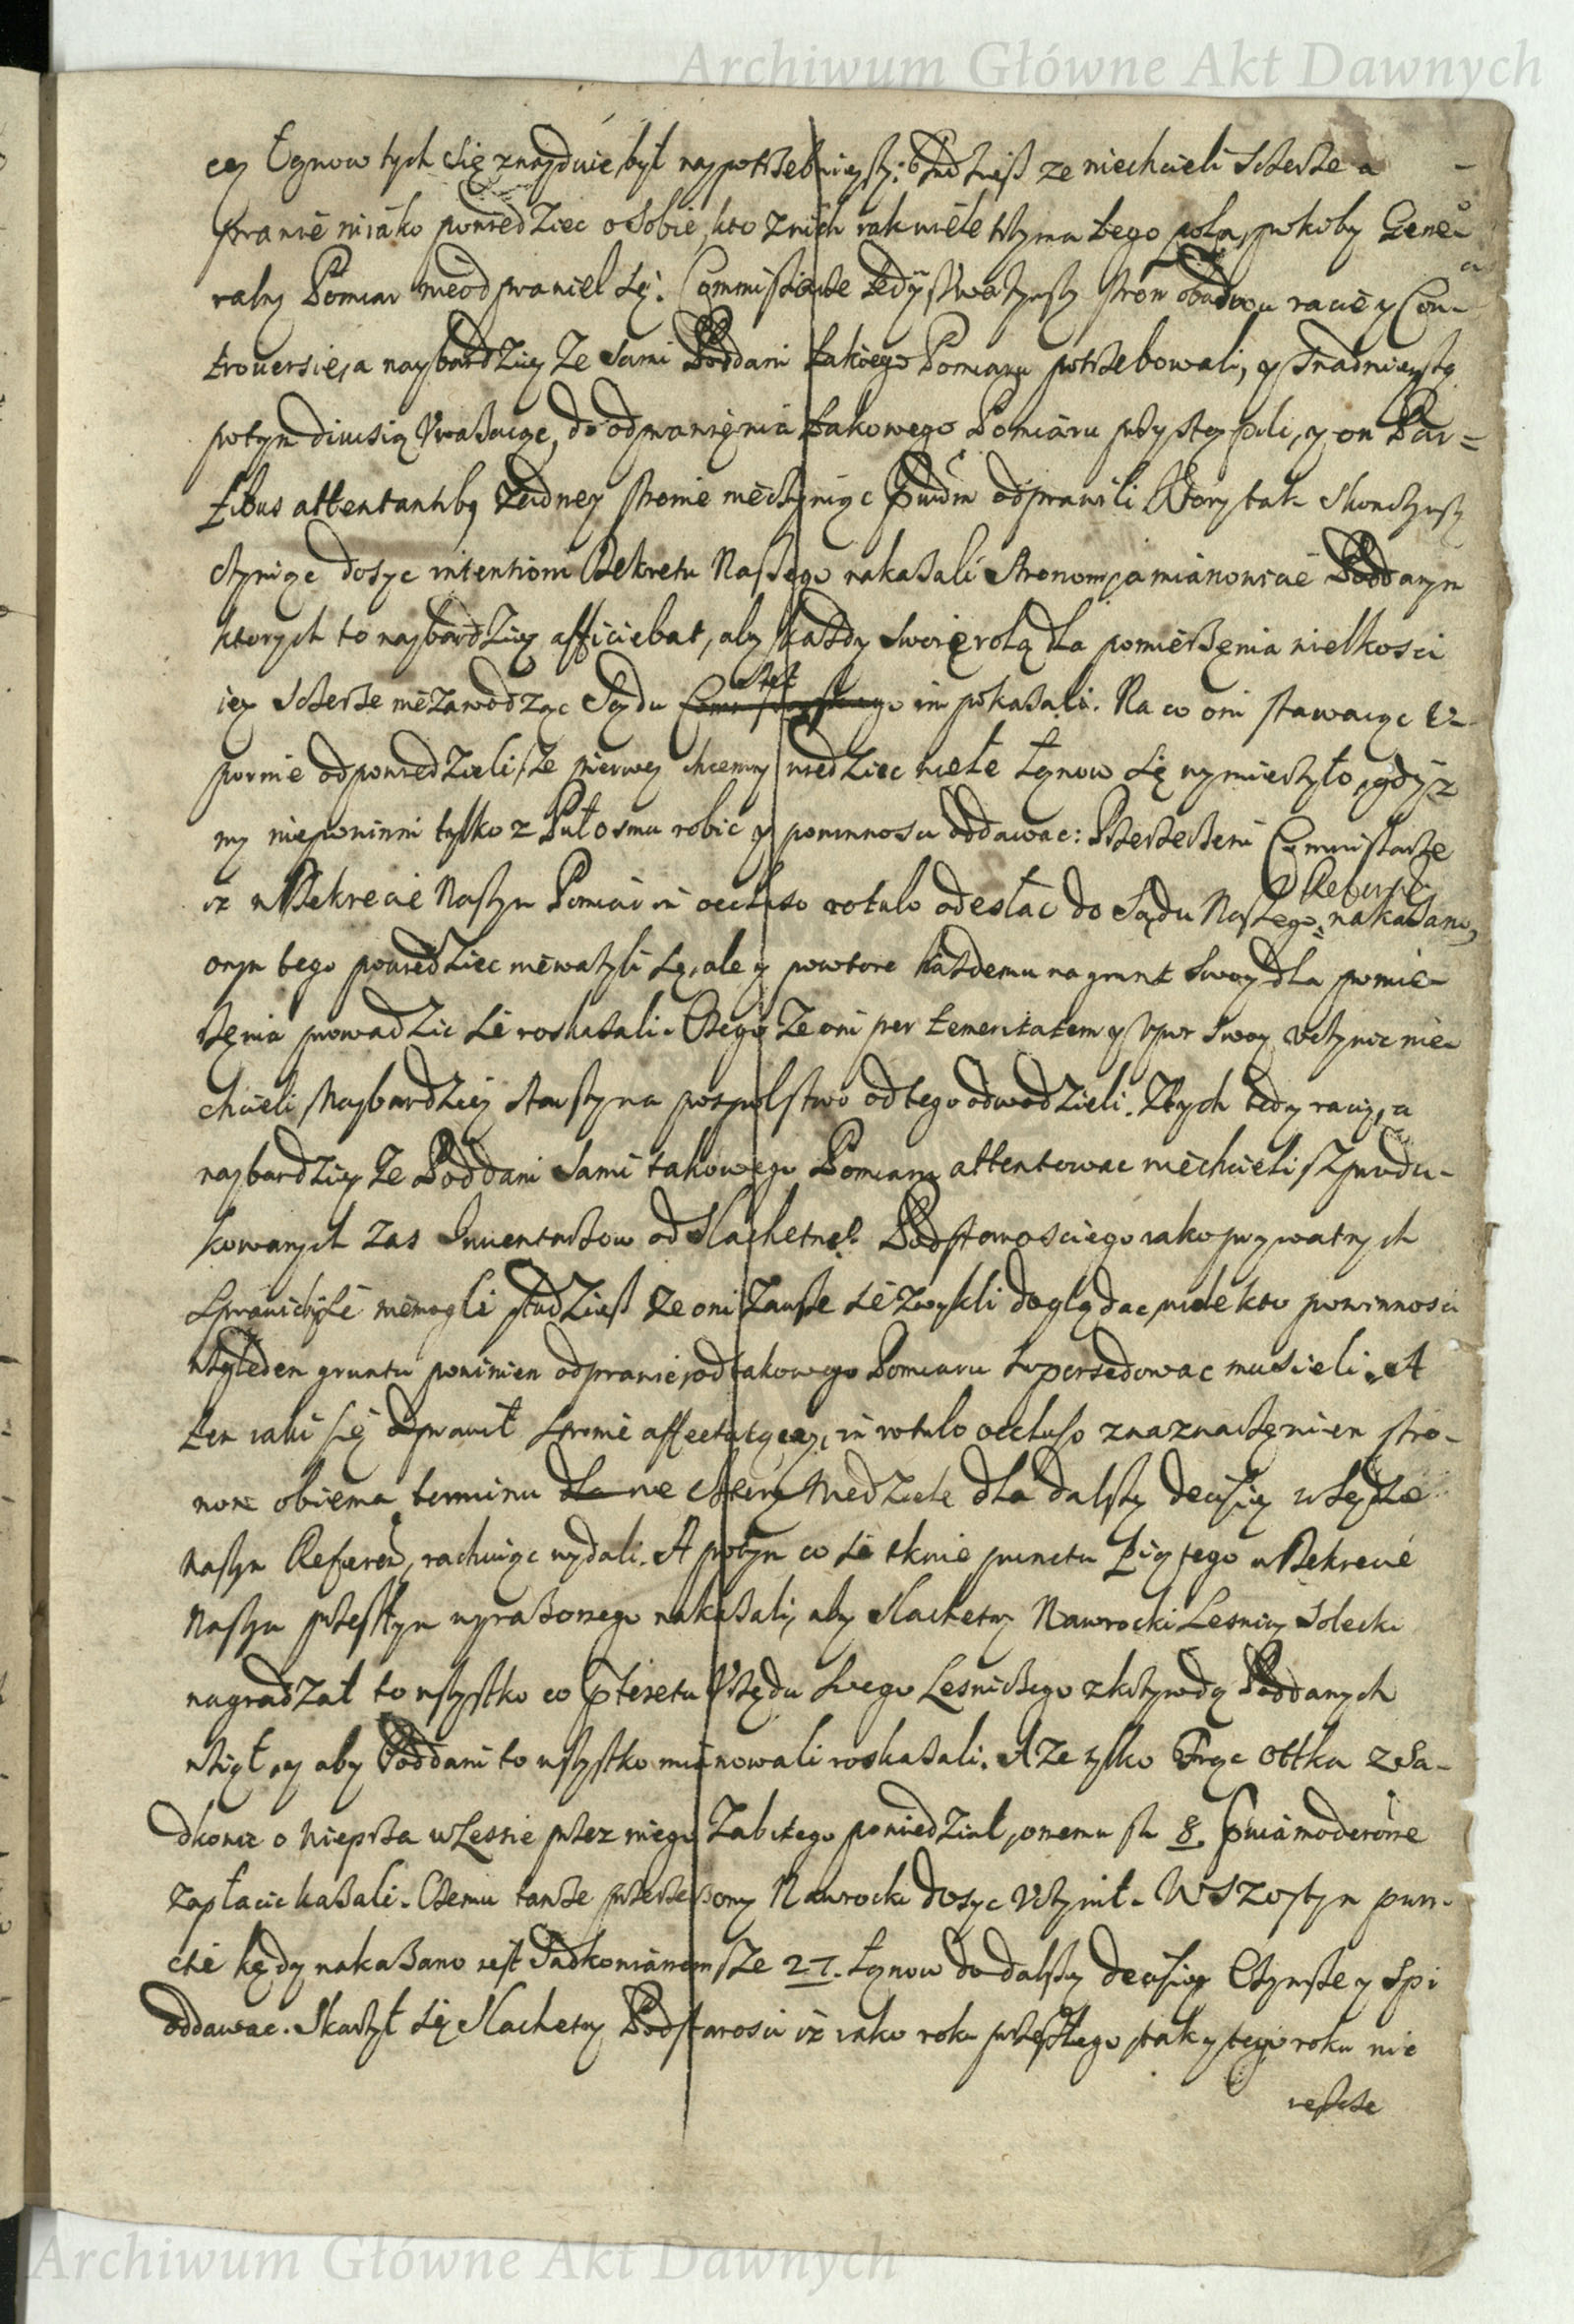 Archiwum Główne Akt Dawnych
cey Łanow tych się znayduie, był naypotrzebnieyszy; tudziesz ze niechcieli Sczerze a
prawie niiako powiedziec o sobie, kto z nich iak wiele trzyma tego pola, pokiby Gene-
ralny Pomiar nieodprawiel się. Commissarze tedy stron obudwu racie y Con-
trouersie, a naybardziey ze sami Poddani takiego Pomiaru potrzebowali, y snadnieyszą
potym diuisią Uwazaiąc, do odprawienia takowego Pomiaru przystąpili, y on Par-
tibus attentantibus zadney stronie nieczyniąc odprawili Ktory tak skonczywszy
czyniąc dosyc intentioni Dekretu Naszego nakazali Stronom, a mianowicie Poddanym
ktorych to naybardziey afficiebat, aby kazdy swoię rolą dla pomierzenia wielkosci
iey Sczerze niezawodząc Sądu im pokazali. Na co oni stawaiąc U-
pornie odpowiedzieli, ze pierwey chcemy wiedziec wiele Łanow się wymierzyło, gdyz
my niepowinni tylko z Puł osmu robic y powinnosci oddawac: Przerzeczeni Commissarze
iz w Dekrecie Naszym Pomiar in occluso rotulo odesłac do Sądu Naszego nakazano,
onym tego powiedziec niewazyli się, ale y powtore kazdemu na grunt swoy dla pomie-
rzenia prowadzic się roskazali. Czego ze oni per temeritatem y Upor swoy uczynic nie-
chcieli Naybardziey starszyna pospolstwo od tego odwodzieli. Z tych tedy racij, a
naybardziey ze Poddani sami takowego Pomiaru attentowac niechcieli, z produ-
kowanych zas Inuentarzow od Slachetnego Podstarosciego iako prywatnych
niemogli, tudziesz ze oni zawsze się zwykli doglądac, wiele kto powinnosci
względem gruntu powinien odprawic, od takowego Pomiaru supersedowac musieli. A
ten iaki się odprawił stronie affectuiącey, in rotulo occluso z naznaczeniem stro-
nom obiema terminu Niedziele dla dalszey decisiey w Sądzie
naszym Referend, rachuiąc wydali. A potym co się tknie punctu Piątego w Dekrecie
Naszym przeszłym wyrazonego nakazali, aby Slachetny Nawrocki Lesniczy Solecki
nagradzał to wszystko co Urzędu swego Lesniczego z krzywdą Poddanych
wziął, y aby Poddani to wszystko mianowali roskazali. A ze tylko Fryc Ottka z Sa-
dkowic o Wieprza w Lesie przez niego zabitego powiedział, onemu zł 8.
zapłacic kazali. Czemu tamze przerzeczony Nawrocki dosyc Uczynił. W Szostym pun-
cie kędy nakazano iest Sadkowianom ze 27. Łanow do dalszey decisiey Czynsze y Spi
oddawac. Skarzył się Slachetny Podstarosci iz iako roku przeszłego, tak y tego roku nie
ieszcze
Archiwum Główne Akt Dawnych